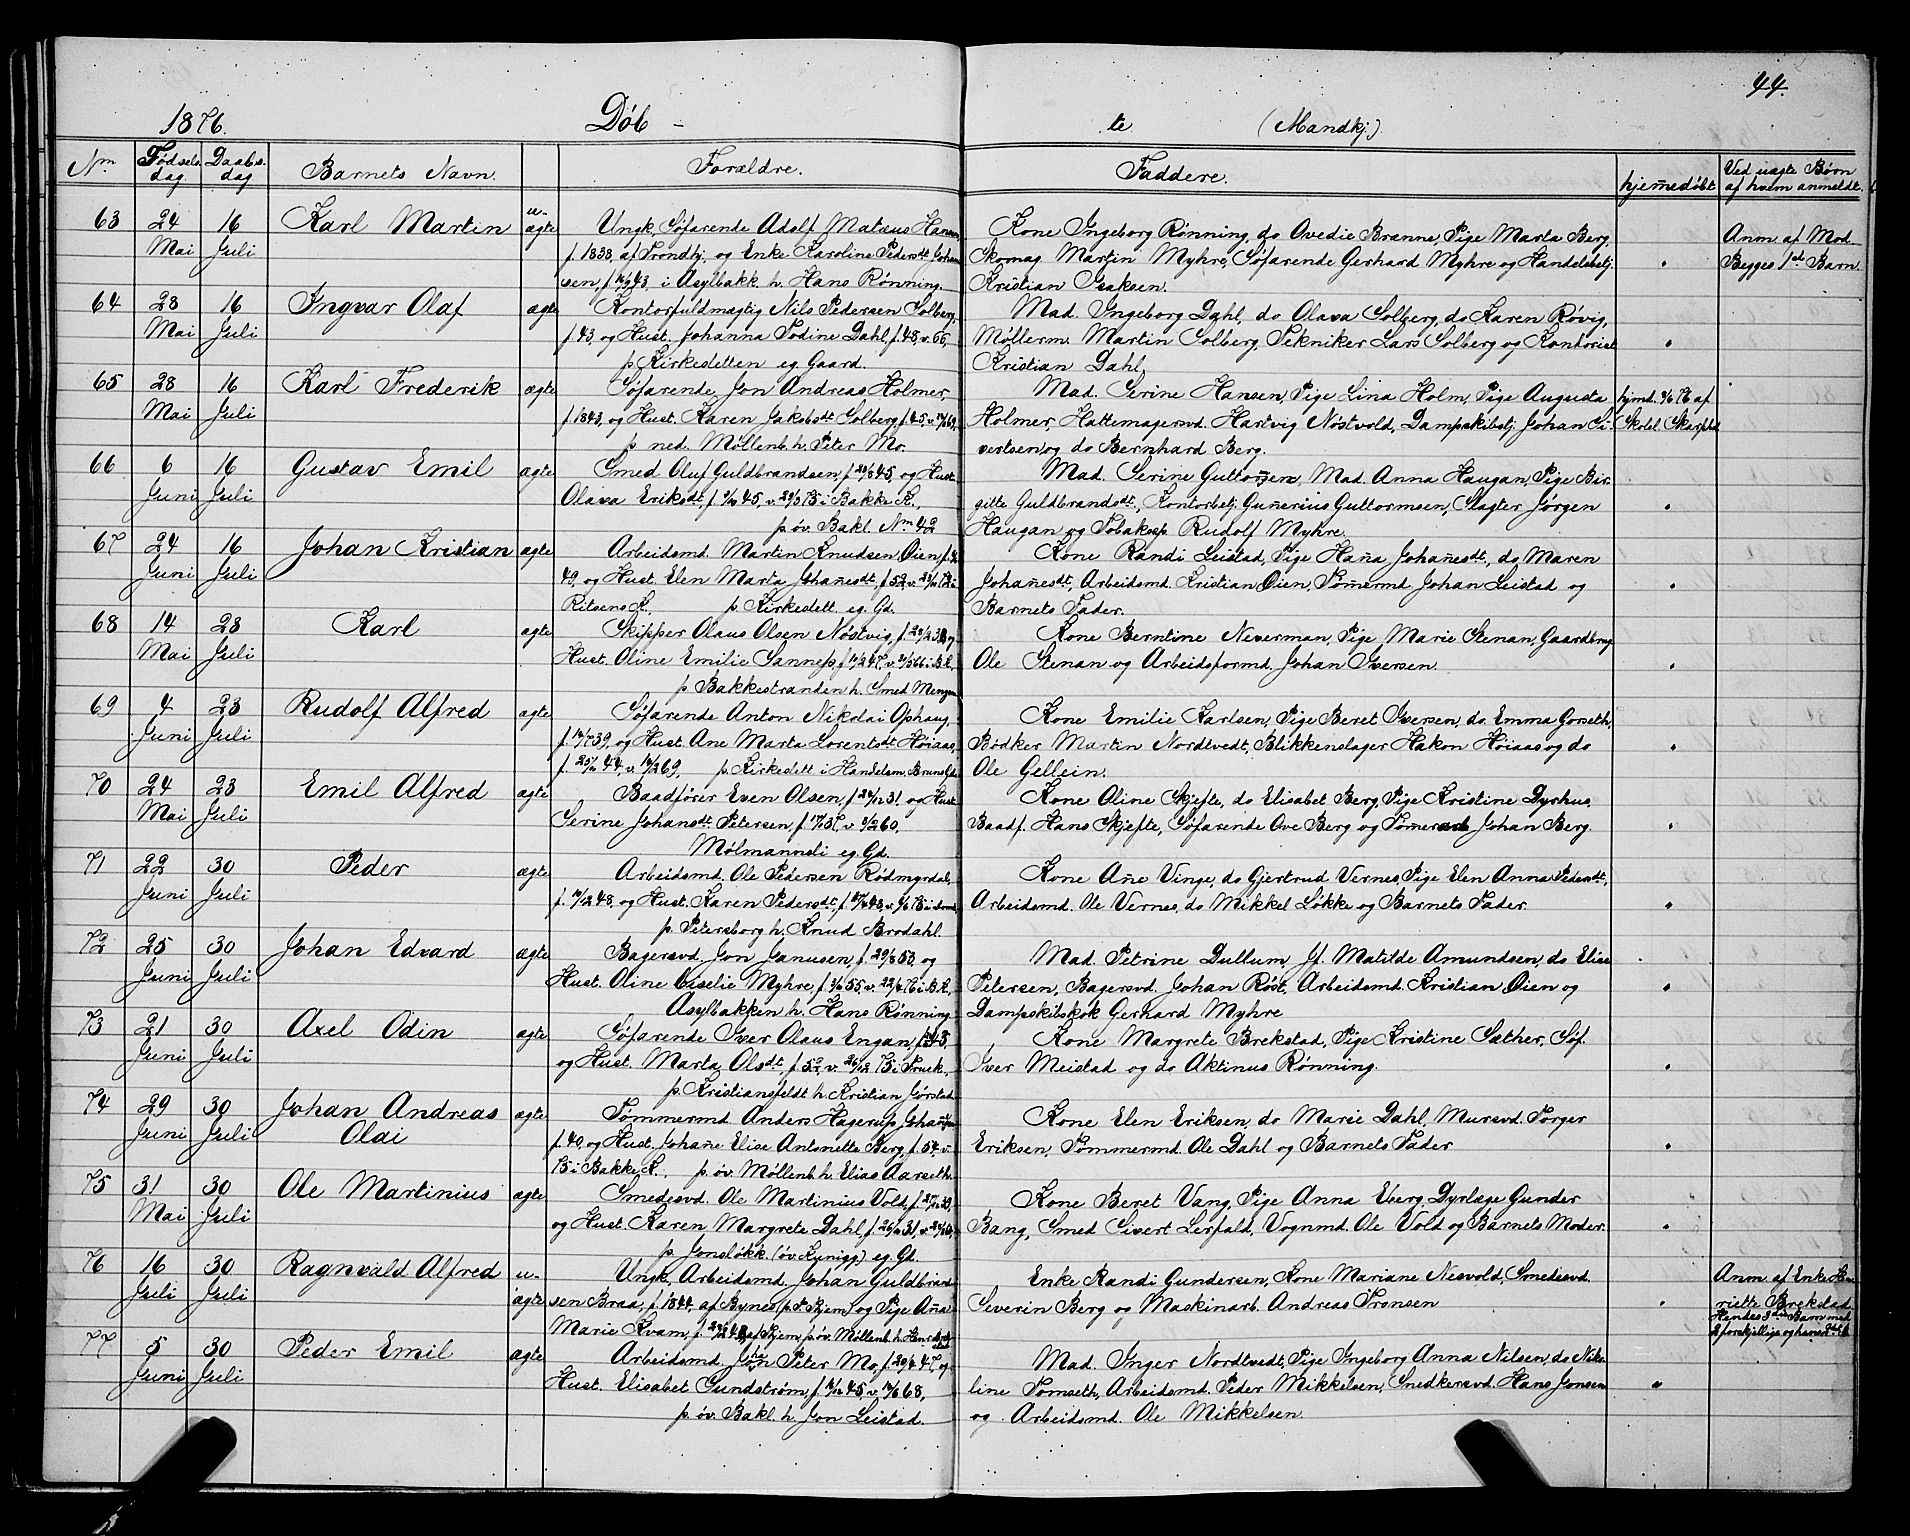 44.
1876. Døb - te (Mandkj.)
Nm Fødsels dag Daabs dag Barnets Navn. Forældre. Faddere. hjemedøbt Ved uægte Børn af hvem anmeldt.
63 24 Mai 16 Juli Karl Martin u-ægte
Ungk. Søfarende Adolf Matæus Hansen,
f. 1838, af Trondhj. og Enke Karoline Pedersdt. Johan
sen, i Asylbakk. h. Hans Rønning.
Kone Ingeborg Rønning, do Ovedie Branne, Pige Marta Berg,
Skomag. Martin Myhre, Søfarende Gerhard Myhre og Handelsbetj.
Kristian Isaksen.
Anm. af Mod.
Begges 1st Barn
64 28 Mai 16 Juli Ingvar Olaf ægte
Kontorfuldmægtig Nils Pedersen Solberg,
f. 43, og Hust. Johanna Jodine Dahl, f. 48, v. 66,
p. Kirkesletten eg. Gaard.
Mad. Ingeborg Dahl, do Olava Solberg, do Karen Røvig,
Møllerm. Martin Solberg, Tekniker Lars Solberg og Kontorist
Kristian Dahl,
65 28 Mai 16 Juli Karl Frederik ægte
Søfarende Jon Andreas Holmer,
f. 1843, og Hust. Karen Jakobsdt. Solberg, f. 45,
p. ned. Møllenb. h. Peter Mo.
Mad. Serine Hansen, Pige Lina Holm, Pige Augusta
Holmer, Hattemagersvd. Hartvig Nøstvold, Dampskibsbetj. Johan Si-
vertsen og do Bernhard Berg.
hjmd. af
66 6 Juni 16 Juli Gustav Emil ægte
Smed Oluf Guldbrandsen, og Hust.
Olava Eriksdt, i Bakke K.,
p. øv. Bakl. Nm 42
Mad. Serine Guttormsen, Mad. Anna Haugan, Pige Bir-
gitte Guldbrandsdt., Kontorbetj. Gunerius Guttormsen, Slagter Jørgen
Haugan og Tobaksp. Rudolf Myhre.
67 24 Juni 16 Juli Johan Kristian ægte
Arbeidsmd. Martin Knudsen Øien,
49, og Hust. Elen Marta Johanesdt, f. 52,
Ritsens K. p. Kirkeslett. eg. Gd.
Kone Randi Leistad, Pige Hana Johanesdt, do Maren
Johanesdt, Arbeidsmd. Kristian Øien, Tømermd. Johan Leistad og
Barnets Fader.
68 14 Mai 23 Juli Karl ægte
Skipper Olaus Olsen Nøstvig, og
Hust. Oline Emilie Sannep, i B.K.,
p. Bakkestranden h. Smed
Kone Berntine Neverman, Pige Marie Stenan, Gaardbrug.
Ole Stenan og Arbeidsformd. Johan Iversen.
69 4 Juni 23 Juli Rudolf Alfred ægte
Søfarende Anton Nikolai Ophaug,
og Hust. Ane Marta Lorentsdt. Høiaas,
p. Kirkeslett. i Handelsm. Bruns Gd.
Kone Emilie Karlsen, Pige Beret Iversen, do. Emma Gorseth,
Bødker Martin Nordtvedt, Blikkenslager Hakon Høiaas og do
Ole Gellein.
70 24 Mai 23 Juli Emil Alfred ægte
Baadfører Even Olsen, og Hust.
Serine Johansdt. Petersen,
Mølmannsli eg. Gd.
Kone Oline Skjefte, do Elisabet Berg, Pige Kristine Dyrhus,
Baadf. Hans Skjefte, Søfarende Ove Berg og Johan Berg.
71 22 Juni 30 Juli Peder ægte
Arbeidsmd. Ole Pedersen Rødmyrdal,
og Hust. Karen Pedersdt,
p. Petersborg h. Knud Brodahl.
Kone Ane Vinge, do Gjertrud Vernes, Pige Elen Anna Pedersdt,
Arbeidsmd. Ole Vernes, do Mikkel Løkke og Barnets Fader.
72 25 Juni 30 Juli Johan Edvard ægte
Bagersvd. Jon Janusen, og
Hust. Oline Myhre, i B.K.,
Asylbakken h. Hans Rønning
Mad. Petrine Dullum, Jf. Matilde Amundsen, do Elise
Petersen, Bagersvd. Johan Røst, Arbeidsmd. Kristian Øien og
Dampskibskok Gerhard Myhre
73 21 Juni 30 Juli Axel Odin ægte
Søfarende Iver Olaus Engan,
og Hust. Marta Olsdt, f. 52,
p. Kristiansfeldt h. Kristian Gørstad.
Kone Margrete Brekstad, Pige Kristine Sæther, Søf.
Iver Meistad og do Aktinus Rønning.
74 29 Juni 30 Juli Johan Andreas Olai ægte
Tømmermd. Anders Hagerup
f. 40, og Hust. Johane Elise Antonette Berg, f. 54, v.
75 i Bakke K., p. øv. Møllenb. h. Elias Aarseth.
Kone Elen Eriksen, do Marie Dahl, Mursvd. Torger
Eriksen, Tømmermd. Ole Dahl og Barnets Fader
75 31 Mai 30 Juli Ole Martinius ægte
Smedesvd. Ole Martinius Vold,
og Hust. Karen Margrete Dahl,
p. Jonsløkk. eg. Gd.
Kone Beret Vang, Pige Anna Eberg, Dyrlæge Gunder
Bang, Smed Sivert Lerfald, Vognmd. Ole Vold og Barnets Moder.
76 16 Juli 30 Juli Ragnvald Alfred u-ægte
Ungk. Arbeidsmd. Johan Guldbrand-
sen Braa, f. 1844, af Bynes, og Pige Ana
Marie Kvam, p. øv. Møllenb. h.
Enke Randi Gundersen, Kone Mariane Nesvold, Smedesvd.
Severin Berg og Maskinarb. Andreas Tronsen
Anm. af Enke Hen-
riette Brekstad.
Hendes 3die Barn med
2 forskjellige og hans
77 5 Juni 30 Juli Peder Emil ægte
Arbeidsmd. Peter Mo, og
Hust. Elisabet Sundstrøm,
p. øv. Bakl. h. Jon Leistad.
Mad. Inger Nordtvedt, Pige Ingeborg Anna Nilsen, do Niko-
line Tomseth, Arbeidsmd. Peder Mikkelsen, Snedkersvd. Hans Jonsen
og Arbeidsmd. Ole Mikkelsen.